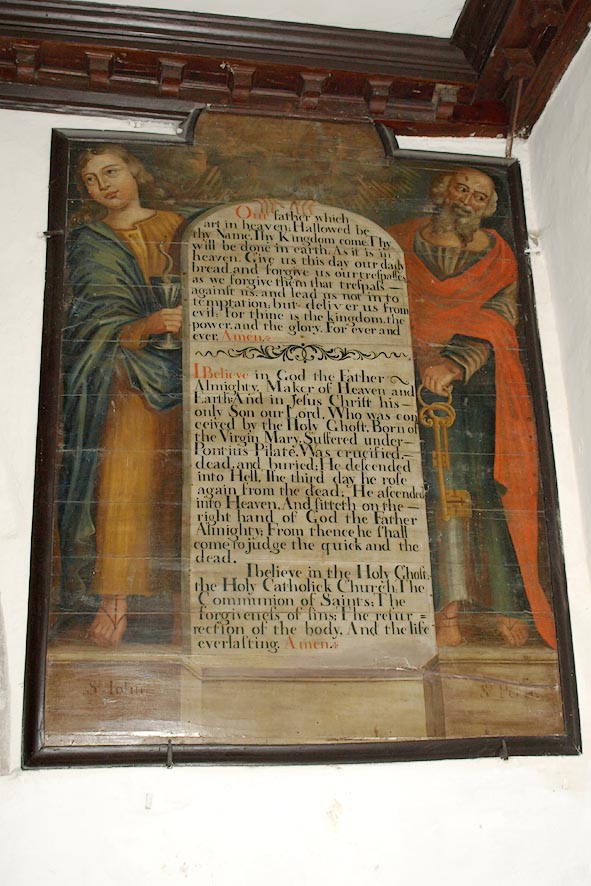 Our father which
art in heaven: Hallowed be
thy Name. Thy Kingdom come. Thy
will be done in earth, As it is in
heaven. Give us this day our daily
bread and forgive us our trespasses
as we forgive them that trespass
against us. and lead us not in to
temptation: but deliver us from
evil: for thine is the kingdom. the
power. and the glory. For ever and
ever. Amen.
I Believe in God the Father
Almighty, Maker of Heaven and
Earth; And in Jesus Christ his
only Son our Lord, Who was con
ceived by the Holy Ghost, Born of
the Virgin Mary, Suffered under
Pontius Pilate, Was crucified,
dead, and buried; He descended
into Hell, The third day he rose
again from the dead; He ascended
into Heaven, And sitteth on the
right hand of God the Father
Almighty; From thence he shall
come to judge the quick and the
dead.
I believe in the Holy Ghost;
the Holy Catholick Church; The
Communion of Saints; The
forgiveness of sins; The resur=
rection of the body, And the life
everlasting. Amen.
St. John
St. Peter